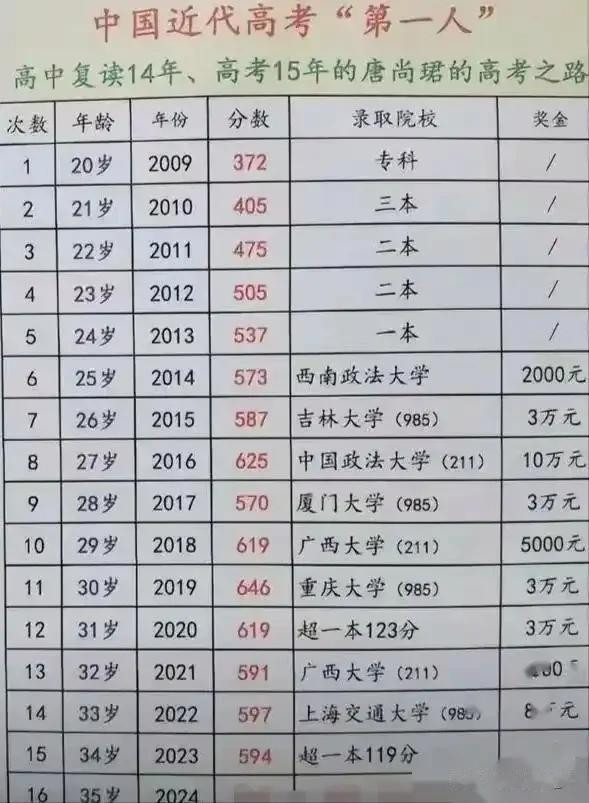 中国近代高考“第一人”
高中复读14年、高考15年的唐尚珺的高考之路
次数 年龄 年份 分数 录取院校 奖金
1 20岁 2009 372 专科 /
2 21岁 2010 405 三本 /
3 22岁 2011 475 二本 /
4 23岁 2012 505 二本 /
5 24岁 2013 537 一本 /
6 25岁 2014 573 西南政法大学 2000元
7 26岁 2015 587 吉林大学(985) 3万元
8 27岁 2016 625 中国政法大学(211) 10万元
9 28岁 2017 570 厦门大学(985) 3万元
10 29岁 2018 619 广西大学(211) 5000元
11 30岁 2019 646 重庆大学(985) 3万元
12 31岁 2020 619 超一本123分 3万元
13 32岁 2021 591 广西大学(211)
14 33岁 2022 597 上海交通大学(985) 元
15 34岁 2023 594 超一本119分
16 35岁 2024